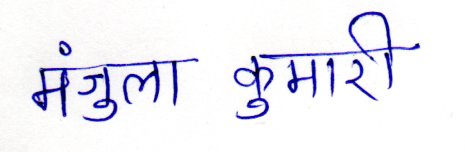 मंजुला कुमारी